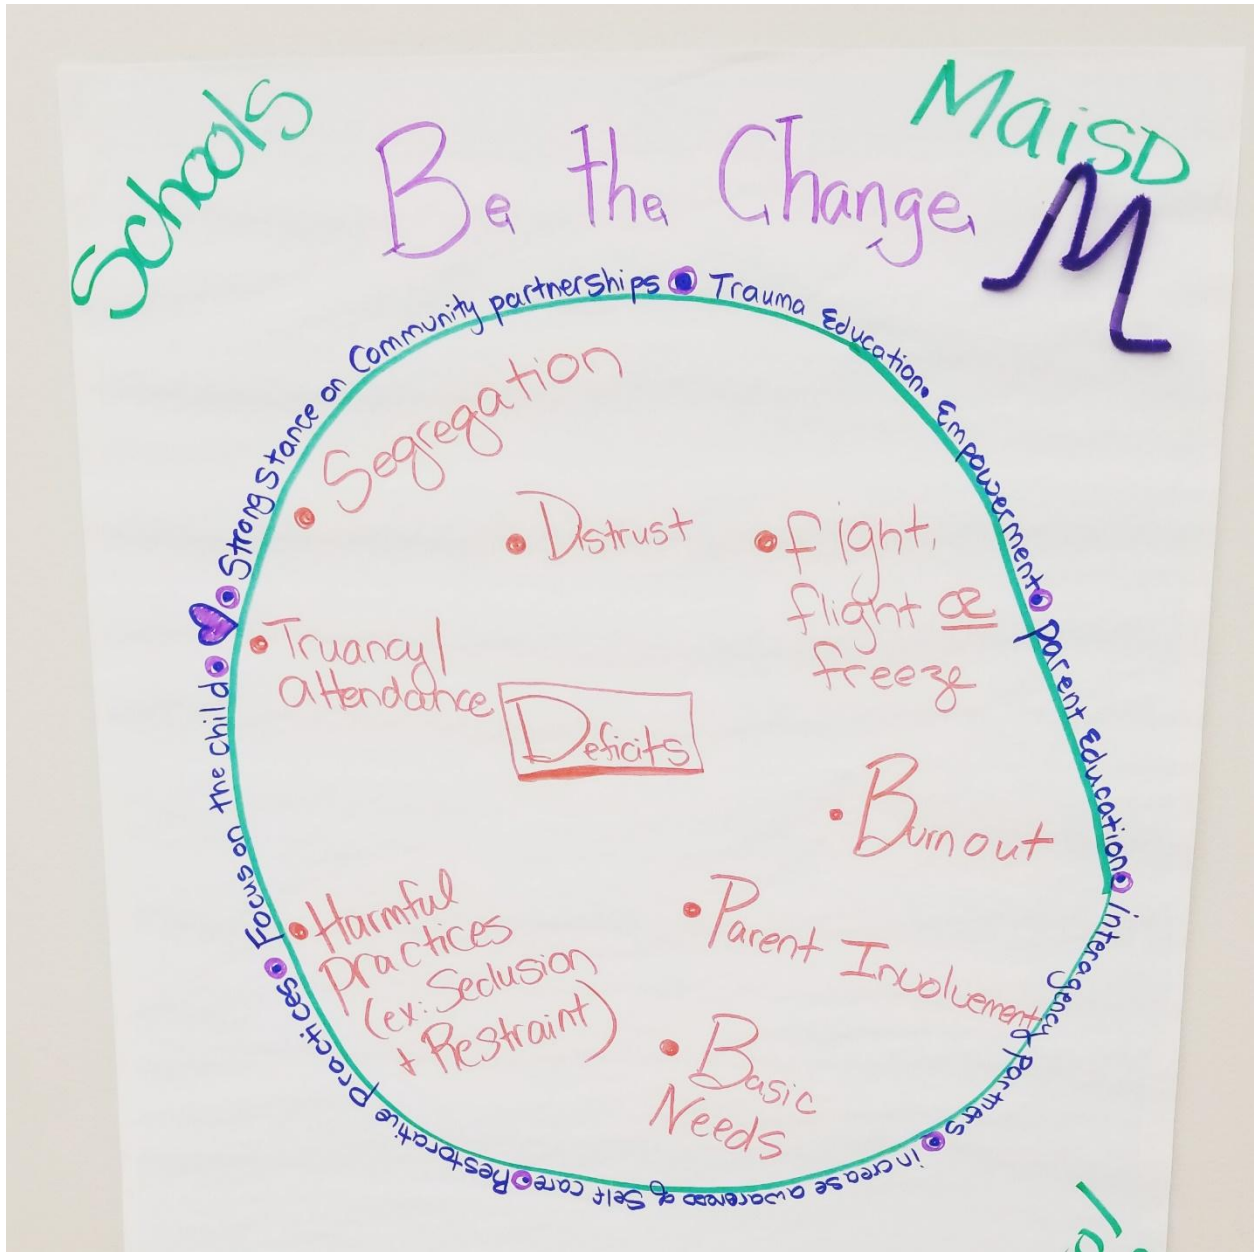 Schools
Be the Change
MaiSD
M
Strong stance on Community partnerships
Trauma Education • Empowerment
Parent Education
Interagency Partners
increase awareness of Self care
Restorative Practices
Focus on the child
• Segregation
• Distrust
• fight,
flight OR
freeze
• Truancy/
attendance
Deficits
• Burnout
• Harmful
practices
(ex: Seclusion
+ Restraint)
• Parent Involvement
• Basic
Needs